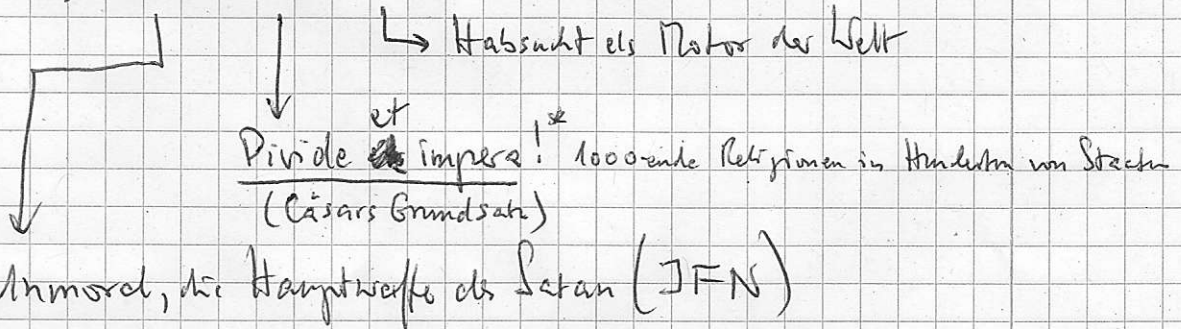 Habsucht als Motor der Welt
et
Divide impera!* 1000-ende Religionen in Hunderten von Staaten
(Cäsars Grundsatz)
die Hauptwaffe des Satan (JFN)